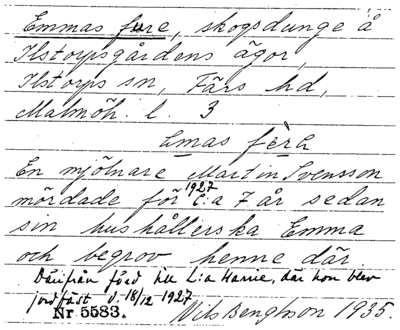 Emmas fure, skogsdunge å
Ilstorpsgårdens ägor,
Ilstorps sn, Färs hd,
Malmöh. l. 3
emas fèrа
En mjölnare Martin Svensson
1927
mördade för c:a 7 år sedan
sin hushållerska Emma
och begrov henne där.
Därifrån förd till L:a Harrie, där hon blev
jordfäst d. 18/12 1927
Nr 5583. Nils Bengtson 1935.